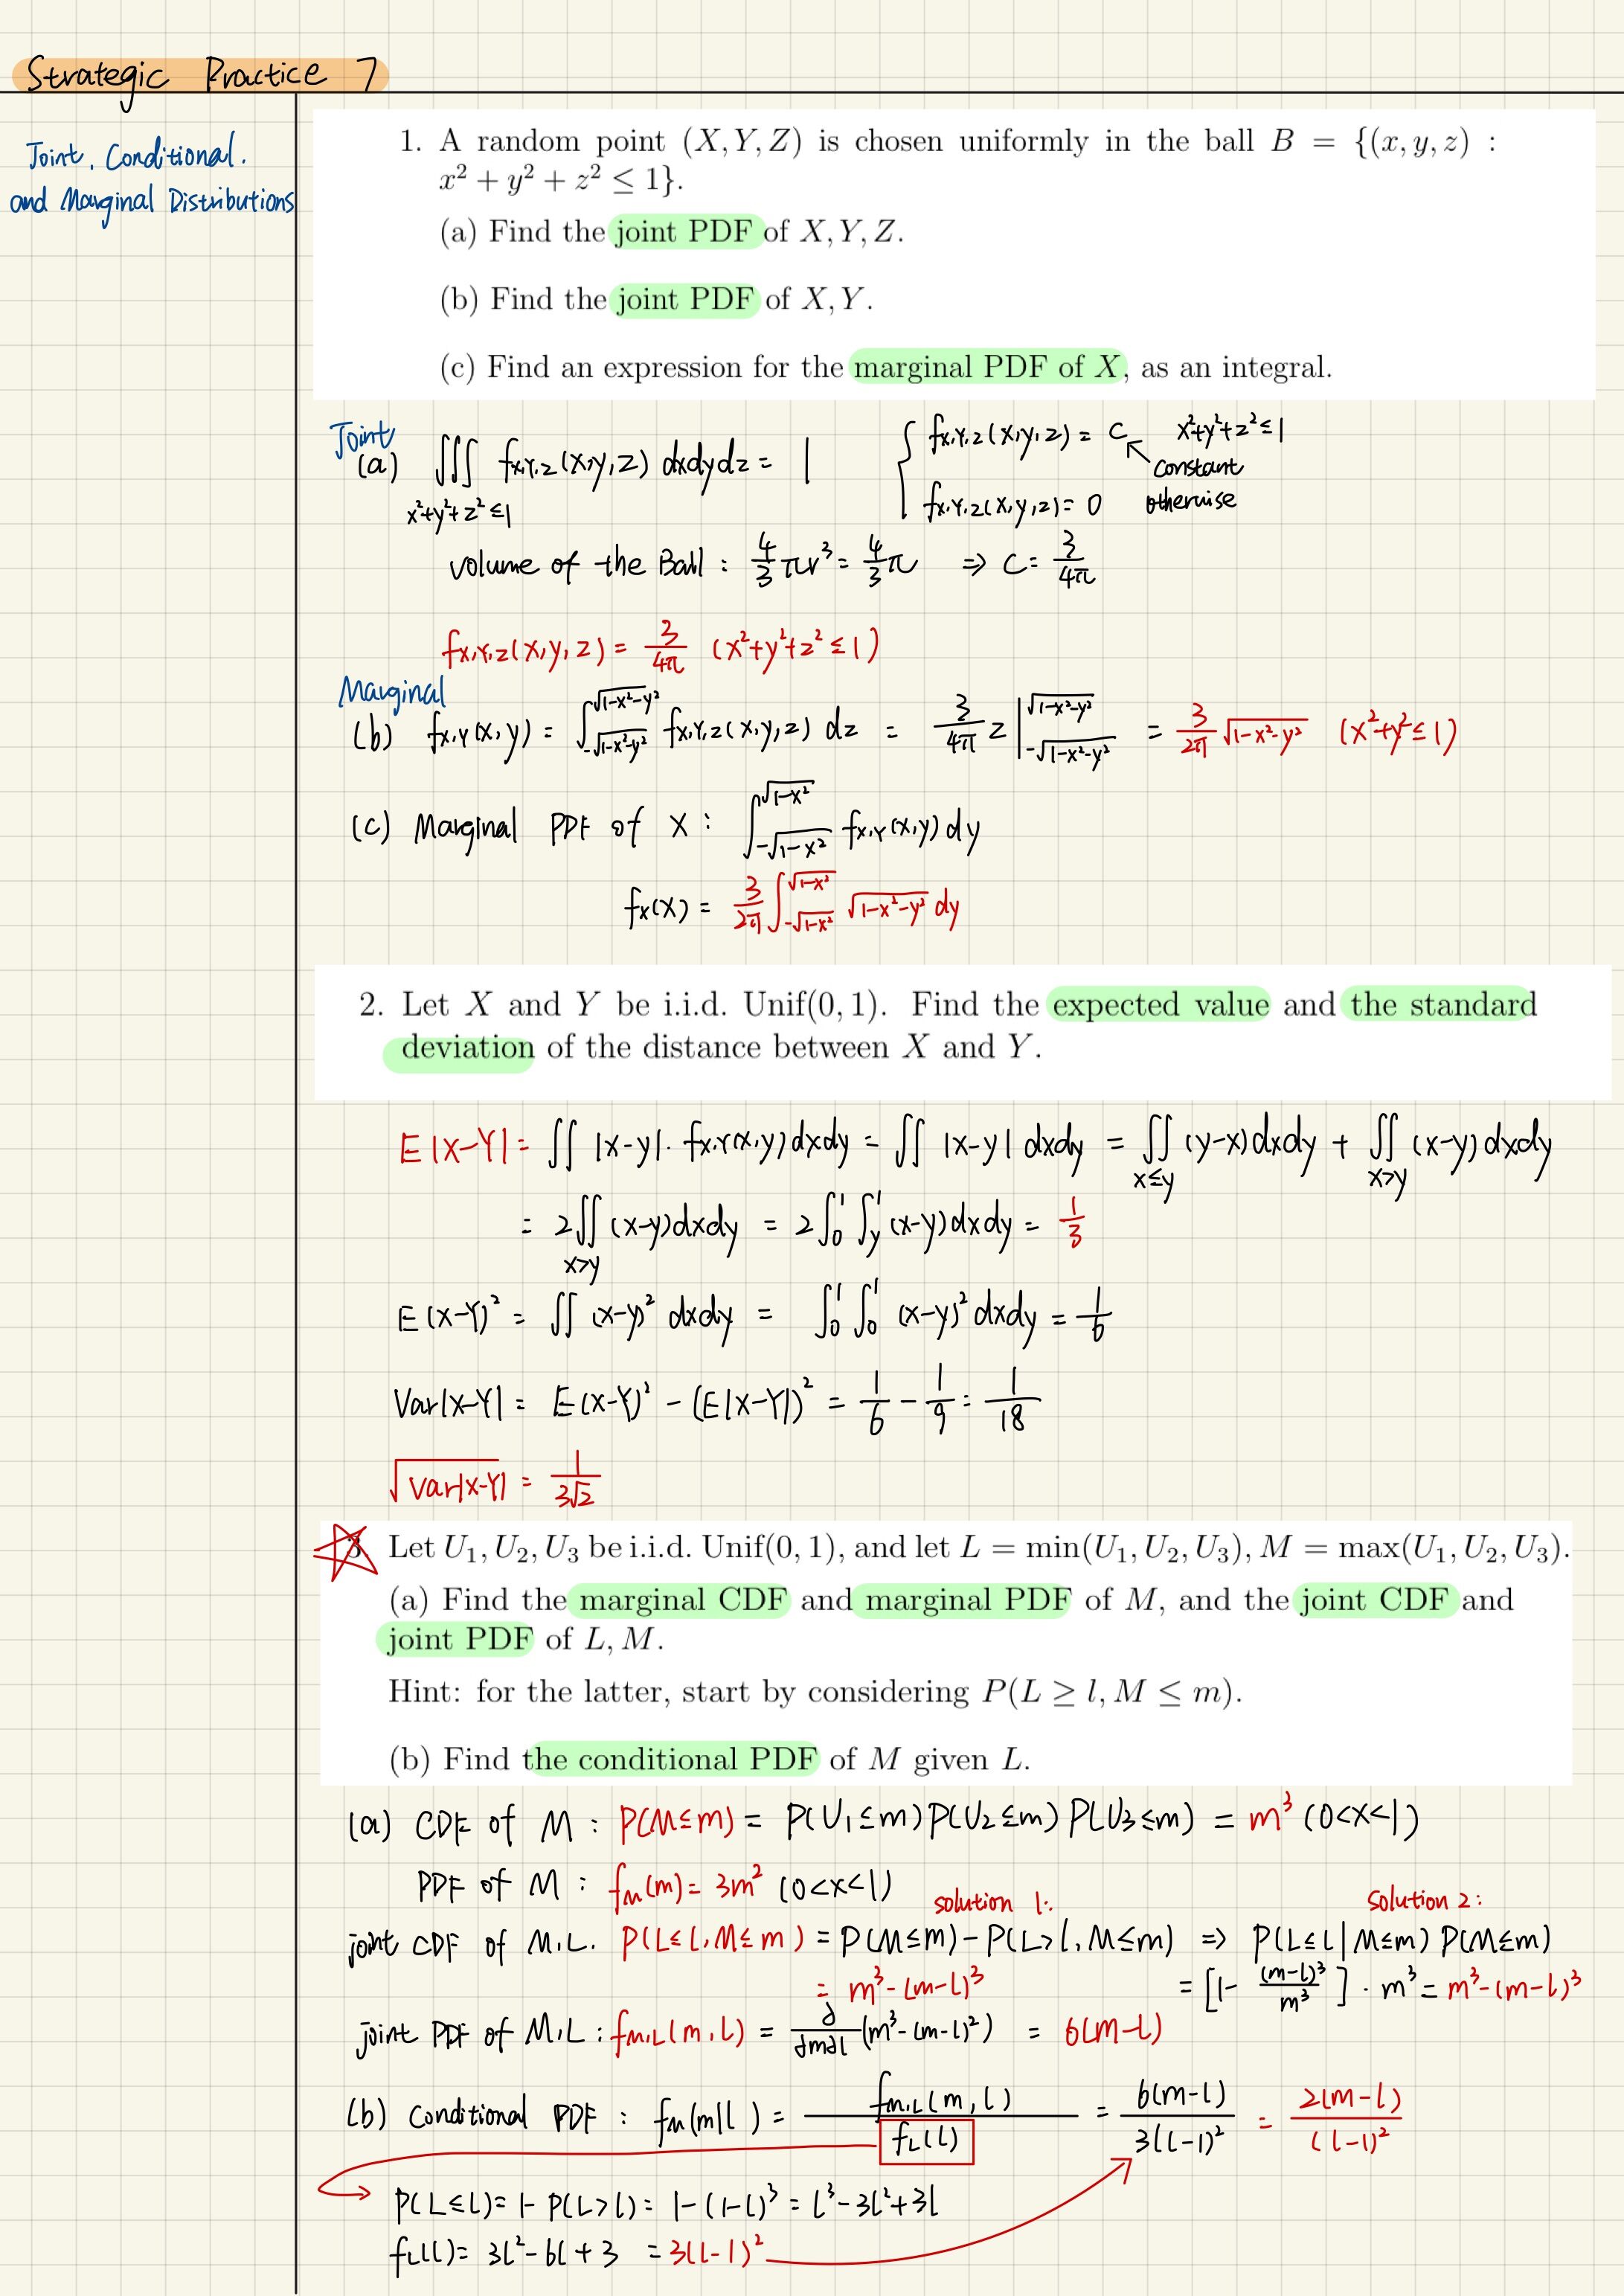 Strategic Practice 7
Joint, Conditional.
and Marginal Distributions
1. A random point (X, Y, Z) is chosen uniformly in the ball B = {(x, y, z) :
x² + y² + z² ≤ 1}.
(a) Find the joint PDF of X, Y, Z.
(b) Find the joint PDF of X, Y.
(c) Find an expression for the marginal PDF of X, as an integral.
Joint
(a) ∭ f_{X,Y,Z}(x,y,z) dxdydz = 1 { f_{X,Y,Z}(x,y,z) = C x²+y²+z² ≤ 1
x²+y²+z² ≤ 1 ↖ constant
f_{X,Y,Z}(x,y,z) = 0 otherwise
volume of the Ball : 4/3 πr³ = 4/3 π ⇒ C = 3/4π
f_{X,Y,Z}(x,y,z) = 3/4π (x²+y²+z² ≤ 1)
Marginal
(b) f_{X,Y}(x,y) = ∫_{-√(1-x²-y²)}^{√(1-x²-y²)} f_{X,Y,Z}(x,y,z) dz = 3/4π z |_{-√(1-x²-y²)}^{√(1-x²-y²)} = 3/2π √(1-x²-y²) (x²+y² ≤ 1)
(c) Marginal PDF of X : ∫_{-√(1-x²)}^{√(1-x²)} f_{X,Y}(x,y) dy
f_X(x) = 3/2π ∫_{-√(1-x²)}^{√(1-x²)} √(1-x²-y²) dy
2. Let X and Y be i.i.d. Unif(0, 1). Find the expected value and the standard
deviation of the distance between X and Y.
E|X-Y| = ∬ |x-y| · f_{X,Y}(x,y) dxdy = ∬ |x-y| dxdy = ∬_{x≤y} (y-x) dxdy + ∬_{x>y} (x-y) dxdy
= 2∬_{x>y} (x-y) dxdy = 2∫_0^1 ∫_y^1 (x-y) dxdy = 1/3
E(X-Y)² = ∬ (x-y)² dxdy = ∫_0^1 ∫_0^1 (x-y)² dxdy = 1/6
Var|X-Y| = E(X-Y)² - (E|X-Y|)² = 1/6 - 1/9 = 1/18
√Var|X-Y| = 1/3√2
3. Let U₁, U₂, U₃ be i.i.d. Unif(0, 1), and let L = min(U₁, U₂, U₃), M = max(U₁, U₂, U₃).
(a) Find the marginal CDF and marginal PDF of M, and the joint CDF and
joint PDF of L, M.
Hint: for the latter, start by considering P(L ≥ l, M ≤ m).
(b) Find the conditional PDF of M given L.
(a) CDF of M : P(M≤m) = P(U₁≤m)P(U₂≤m)P(U₃≤m) = m³ (0<x<1)
PDF of M : f_M(m) = 3m² (0<x<1)
solution 1: solution 2:
joint CDF of M.L. P(L≤l, M≤m) = P(M≤m) - P(L>l, M≤m) ⇒ P(L≤l | M≤m) P(M≤m)
= m³-(m-l)³ = [1 - (m-l)³/m³] · m³ = m³-(m-l)³
joint PDF of M,L : f_{M,L}(m,l) = ∂/∂m∂l (m³-(m-l)²) = 6(m-l)
(b) Conditional PDF : f_M(m|l) = f_{M,L}(m,l)/f_L(l) = 6(m-l)/3(l-1)² = 2(m-l)/(l-1)²
P(L≤l) = 1-P(L>l) = 1-(1-l)³ = l³-3l²+3l
f_L(l) = 3l²-6l+3 = 3(l-1)²